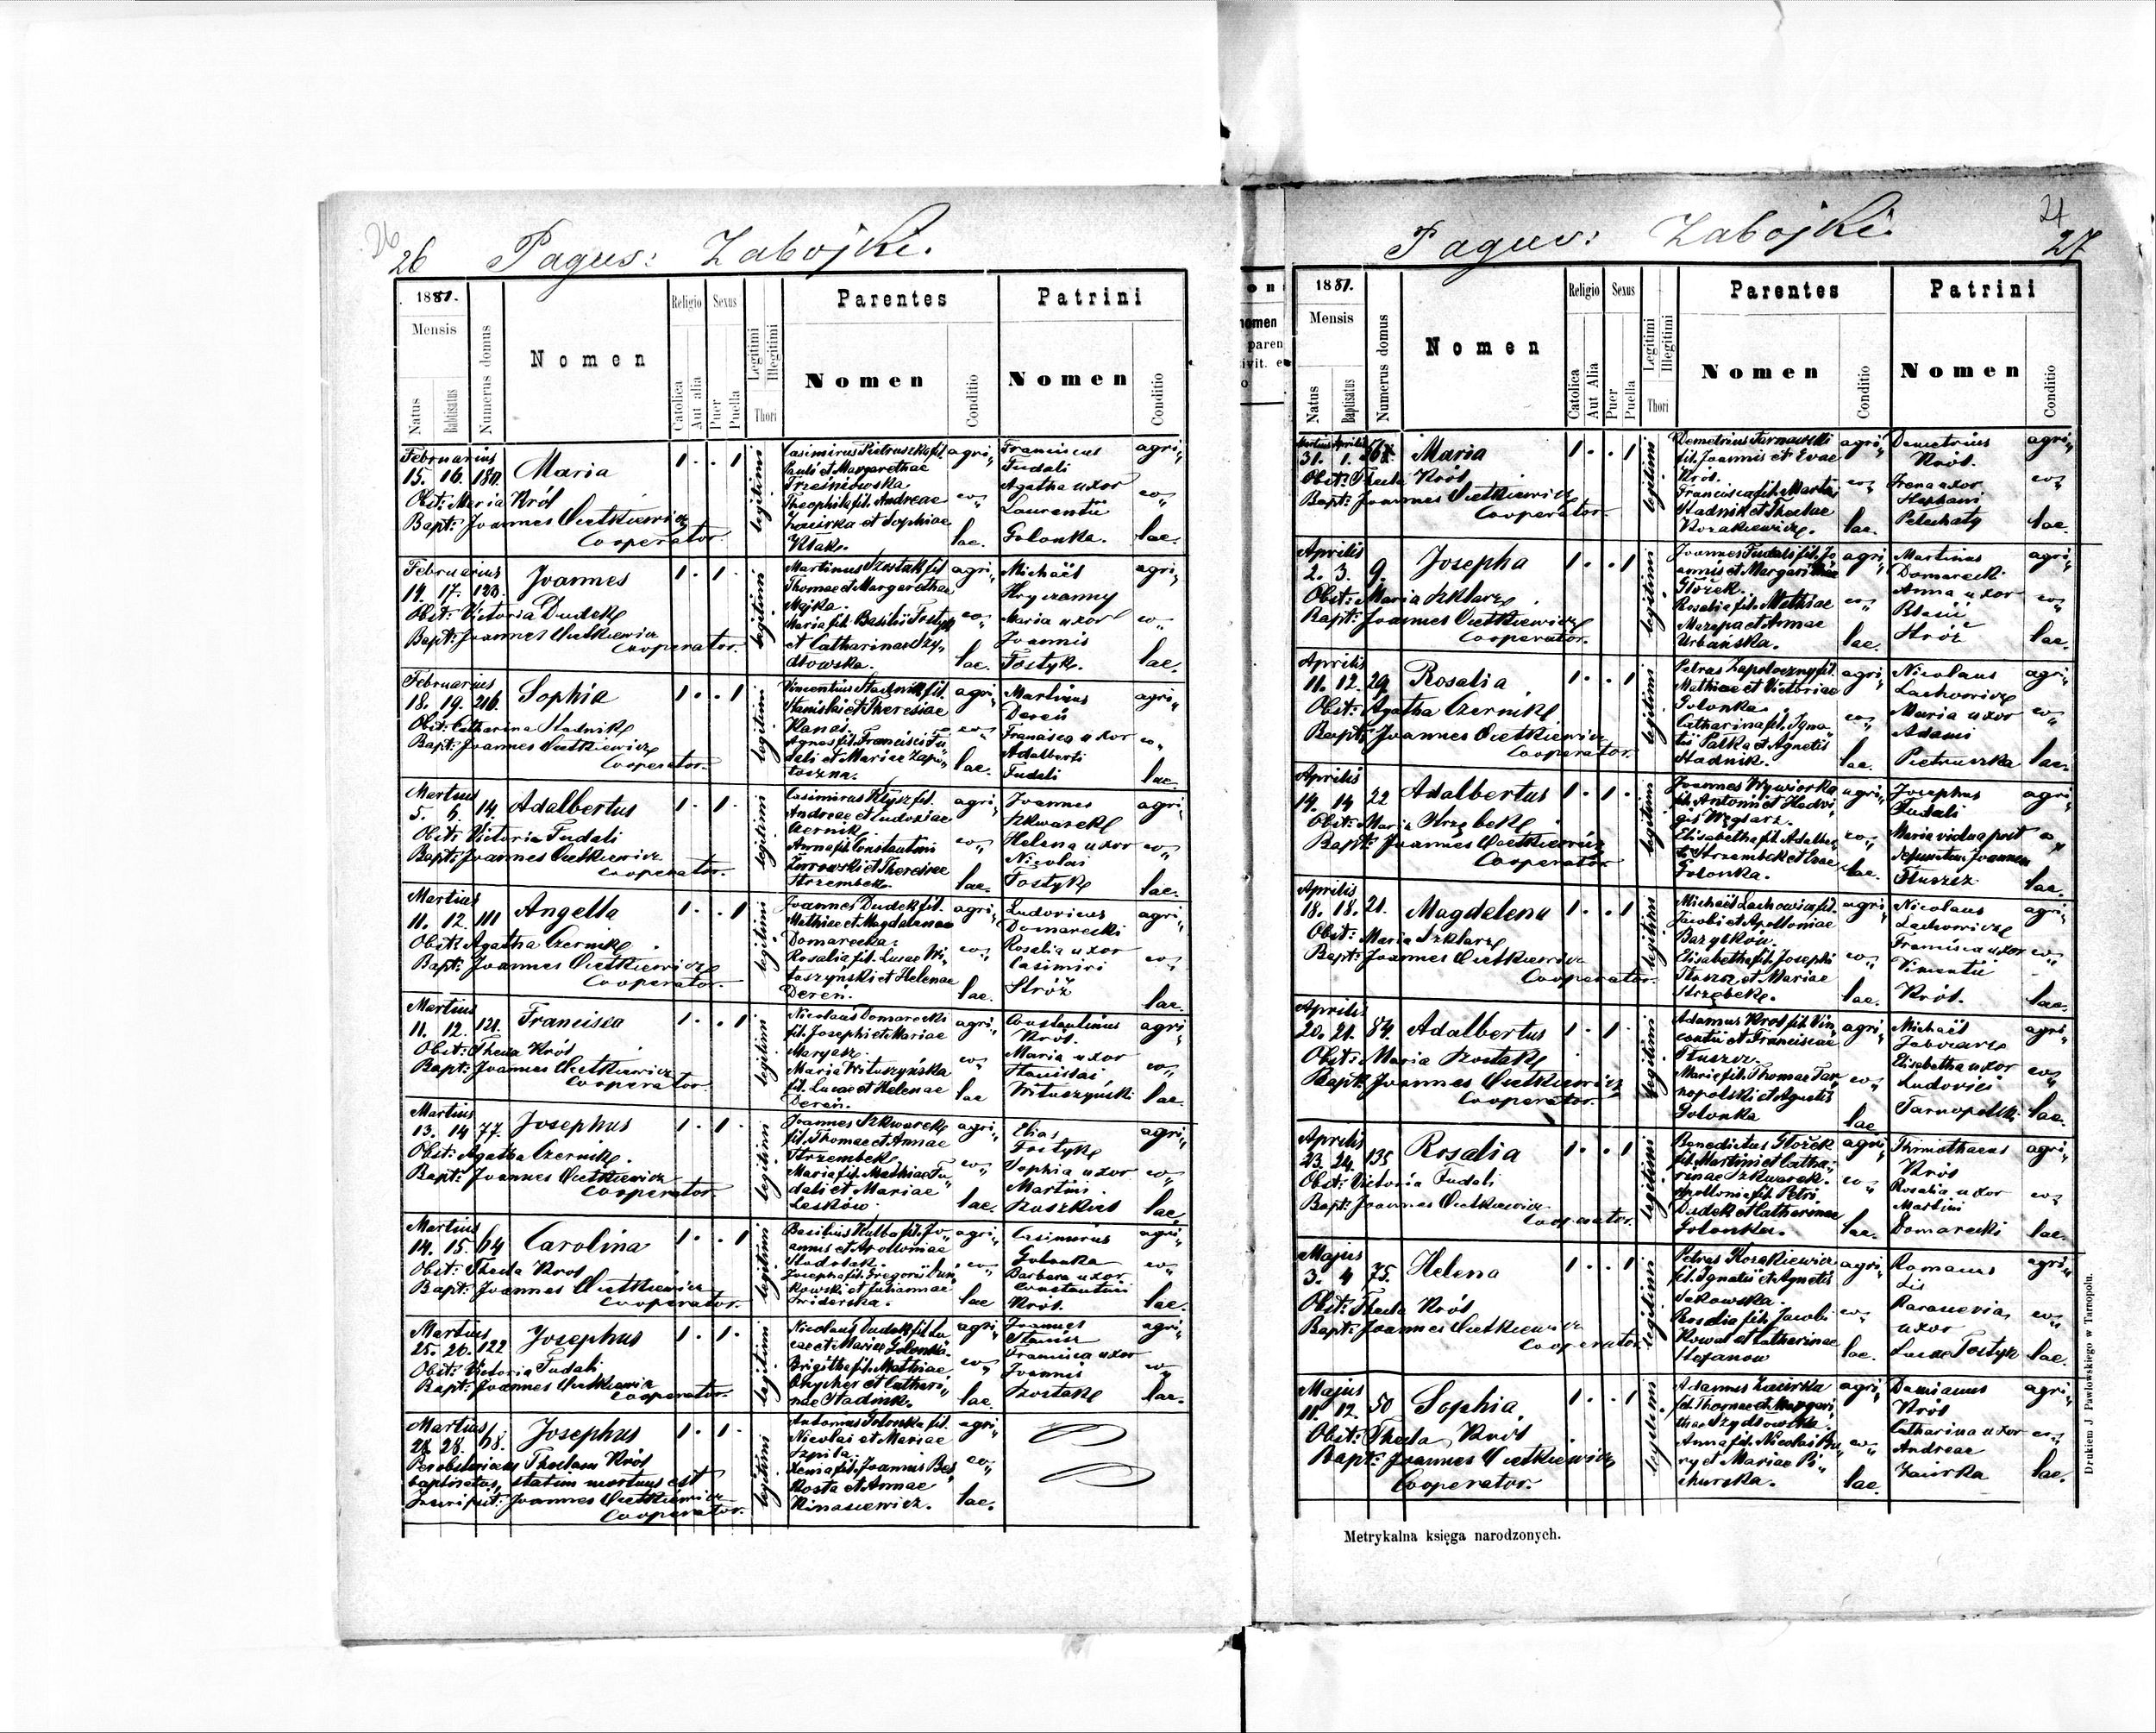 26
26 Pagus: Zabojki.
1881.
Mensis
Natus
Babtisatus
Numerus domus
Nomen
Religio
Catolica
Aut alia
Sexus
Puer
Puella
Legitimi
Illegitimi
Thori
Parentes
Nomen
Conditio
Patrini
Nomen
Conditio
Februarius
15. 16. 180. Maria 1. . 1
Obst: Maria Król
Bapt: Joannes Cietkiewicz
Cooperator.
legitimi
Casimirus Pietruszka fil.
Pauli et Margarethae
Trześniowska
Theophila fil. Andreae
Zacirka et Sophiae
Ktak.
agri„
co„
lae.
Franciscus
Fudali
Agatha uxor
Laurentii
Golonka.
agri„
co„
lae.
Februarius
17. 123. Joannes 1. 1.
Obst: Victoria Dudek
Bapt: Joannes Cietkiewicz
Cooperator.
legitimi
Martinus Szostak fil
Thomae et Margarethae
Majka.
Maria fil. Basilii Tostyk
et Catharinae Szy„
dłowska.
agri„
co„
lae.
Michaël
Hryczanny
Maria uxor
Joannis
Tostyk.
agri„
co„
lae.
Februarius
18. 19. 216. Sophia 1. . 1
Obst: Catharina Stadnik
Bapt: Joannes Cietkiewicz
Cooperator.
legitimi
Vincentius Stadnik fil.
Stanislai et Theresiae
Kanas.
Agnes fil. Francisci Fu„
dali et Mariae Zapo„
toczna.
agri„
co„
lae.
Martinus
Dereń
Francisca uxor
Adalberti
Fudali
agri„
co„
lae.
Martius
5. 6. 14. Adalbertus 1. 1.
Obst: Victoria Fudali
Bapt: Joannes Cietkiewicz
Cooperator.
legitimi
Casimirus Kłysz fil.
Andreae et Ludoviae
Czernik.
Anna fil. Constantini
Żurowski et Theresiae
Strzembek.
agri„
co„
lae.
Joannes
Szkwarek
Helena uxor
Nicolai
Tostyk
agri„
co„
lae.
Martius
11. 12. 111 Angella 1. . 1
Obst: Agatha Czernik
Bapt: Joannes Cietkiewicz
Cooperator.
legitimi
Joannes Dudek fil.
Mathiae et Magdalenae
Domarecka.
Rosalia fil. Lucae Wi„
tuszyński et Helenae
Dereń.
agri„
co„
lae.
Ludovicus
Domarecki
Rosalia uxor
Casimiri
Stróż
agri„
co„
lae.
Martius
11. 12. 121. Francisca 1. . 1
Obst: Thecla Król
Bapt: Joannes Cietkiewicz
Cooperator.
legitimi
Nicolaus Domarecki
fil. Josephi et Mariae
Maryasz.
Maria Wituszyńska
fil. Lucae et Helenae
Dereń.
agri„
co„
lae
Constantinus
Król.
Maria uxor
Stanislai
Wituszyński
agri„
co„
lae.
Martius
13. 14 77. Josephus 1. 1.
Obst: Agatha Czernik.
Bapt: Joannes Cietkiewicz
Cooperator.
legitimi
Joannes Szkwarek
fil. Thomae et Annae
Strzembek.
Maria fil. Mathiae Fu„
dali et Mariae
Lesków.
agri„
co„
lae.
Elias
Tostyk
Sophia uxor
Martini
agri„
co„
lae.
Martius
14. 15. 64 Carolina 1. . 1
Obst: Thecla Król
Bapt: Joannes Cietkiewicz
Cooperator.
legitimi
Basilius Kulba fil. Jo„
annis et Apolloniae
Josepha fil. Gregorii
et Juliannae
Świderska.
agri„
co„
lae
Casimirus
Golonka
Barbara uxor
Constantini
Król.
agri„
co„
lae.
Martius
25. 26. 122 Josephus 1. 1.
Obst: Victoria Fudali
Bapt: Joannes Cietkiewicz
Cooperator.
legitimi
Nicolaus Dudek fil. Lu„
cae et Mariae Golonka.
Brigitha fil. Mathiae
et Cathari„
nae Stadnik.
agri„
co„
lae.
Joannes
Francisca uxor
Joannis
Szostak
agri„
co„
lae.
Martius
28. 28. 68. Josephus 1. 1.
Per obstetricem Theclam Król
baptisatus, statim mortuus est
Inscripsit: Joannes Cietkiewicz
Cooperator.
legitimi
Antonius Golonka fil.
Nicolai et Mariae
Szpila.
Xenia fil. Joannis Bes„
kosta et Annae
Kinasiewicz.
agri„
co„
lae.
27
Pagus: Zabojki. 27
1881.
Mensis
Natus
Baptisatus
Numerus domus
Nomen
Religio
Catolica
Aut Alia
Sexus
Puer
Puella
Legitimi
Illegitimi
Thori
Parentes
Nomen
Conditio
Patrini
Nomen
Conditio
Martius Aprilis
31. 1. Maria 1. . 1
Obst: Thecla Król
Bapt: Joannes Cietkiewicz
Cooperator.
legitimi
Demetrius Tarnawski
fil. Joannis et Evae
Król.
Francisca fil. Martini
Stadnik et Theclae
Kozakiewicz.
agri„
co„
lae.
Demetrius
Król.
Irena uxor
Stephani
Pelechaty
agri„
co„
lae.
Aprilis
2. 3. 9. Josepha 1. . 1
Obst: Maria Szklarz
Bapt: Joannes Cietkiewicz
Cooperator.
legitimi
Joannes Fudali fil. Jo„
annis et Margarithae
Głożek.
Rosalia fil. Mathiae
Mazepa et Annae
Urbańska.
agri„
co„
lae.
Martinus
Domarecki
Anna uxor
Blasii
Stróż
agri„
co„
lae.
Aprilis
11. 12. 29. Rosalia 1. . 1
Obst: Agatha Czernik
Bapt: Joannes Cietkiewicz
Cooperator.
legitimi
Petrus Zapotoczny fil.
Mathiae et Victoriae
Golonka.
Catharina fil. Igna„
tii Pałka et Agnetis
Stadnik.
agri„
co„
lae.
Nicolaus
Lachowicz
Maria uxor
Adami
Pietruszka
agri„
co„
lae.
Aprilis
14. 14 22 Adalbertus 1. 1.
Obst: Maria Strzębek
Bapt: Joannes Cietkiewicz
Cooperator.
legitimi
Joannes Wywiórka
fil. Antonii et Hedvi„
gis Węglarz.
Elisabetha fil. Adalber„
ti Strzembek et Evae
Golonka.
agri„
co„
lae.
Josephus
Fudali
Maria vidua post
defunctum Joannem
Tłuszcz
agri„
lae.
Aprilis
18. 18. 21. Magdalena 1. . 1
Obst: Maria Szklarz
Bapt: Joannes Cietkiewicz
Cooperator.
legitimi
Michaël Lachowicz fil.
Jacobi et Apolloniae
Bazylków.
Elisabetha fil. Josephi
Tłuszcz et Mariae
Strzębek.
agri„
co„
lae.
Nicolaus
Lachowicz
Francisca uxor
Vincentii
Król.
agri„
co„
lae.
Aprilis
20. 21. 84. Adalbertus 1. 1.
Obst: Maria Szostak
Bapt: Joannes Cietkiewicz
Cooperator.
legitimi
Adamus Król fil. Vin„
centii et Franciscae
Tłuszcz.
Maria fil. Thomae Tar„
nopolski et Agnetis
Golonka
agri„
co„
lae
Michaël
Elisabetha uxor
Ludovici
Tarnopolski
agri„
co„
lae.
Aprilis
23. 24. 135 Rosalia 1. . 1
Obst: Victoria Fudali
Bapt: Joannes Cietkiewicz
Cooperator.
legitimi
Benedictus Głożek
fil. Martini et Catha„
rinae Szkwarek.
Apollonia fil. Petri
Dudek et Catharinae
Golonka.
agri„
co„
lae.
Thimothaeus
Król
Rosalia uxor
Martini
Domarecki
agri„
co„
lae.
Majus
3. 4 75. Helena 1. . 1
Obst: Thecla Król
Bapt: Joannes Cietkiewicz
Cooperator.
legitimi
Petrus Kozakiewicz
fil. Ignatii et Agnetis
Sakowska.
Rosalia fil. Jacobi
Kowal et Catharinae
Stefanow
agri„
co„
lae.
Romanus
Lis
Parascevia
uxor
Lucae Tostyk
agri„
co„
lae.
Majus
11. 12. 50 Sophia 1. . 1
Obst: Thecla Król
Bapt: Joannes Cietkiewicz
Cooperator.
legitimi
Adamus Zacirka
fil. Thomae et Margari„
thae Szydłowska.
Anna fil. Nicolai Bu„
ry et Mariae Pi„
churska.
agri„
co„
lae.
Damianus
Król
Catharina uxor
Andreae
Zacirka
agri„
co„
lae.
Metrykalna księga narodzonych.
Drukiem J. Pawłowskiego w Tarnopolu.